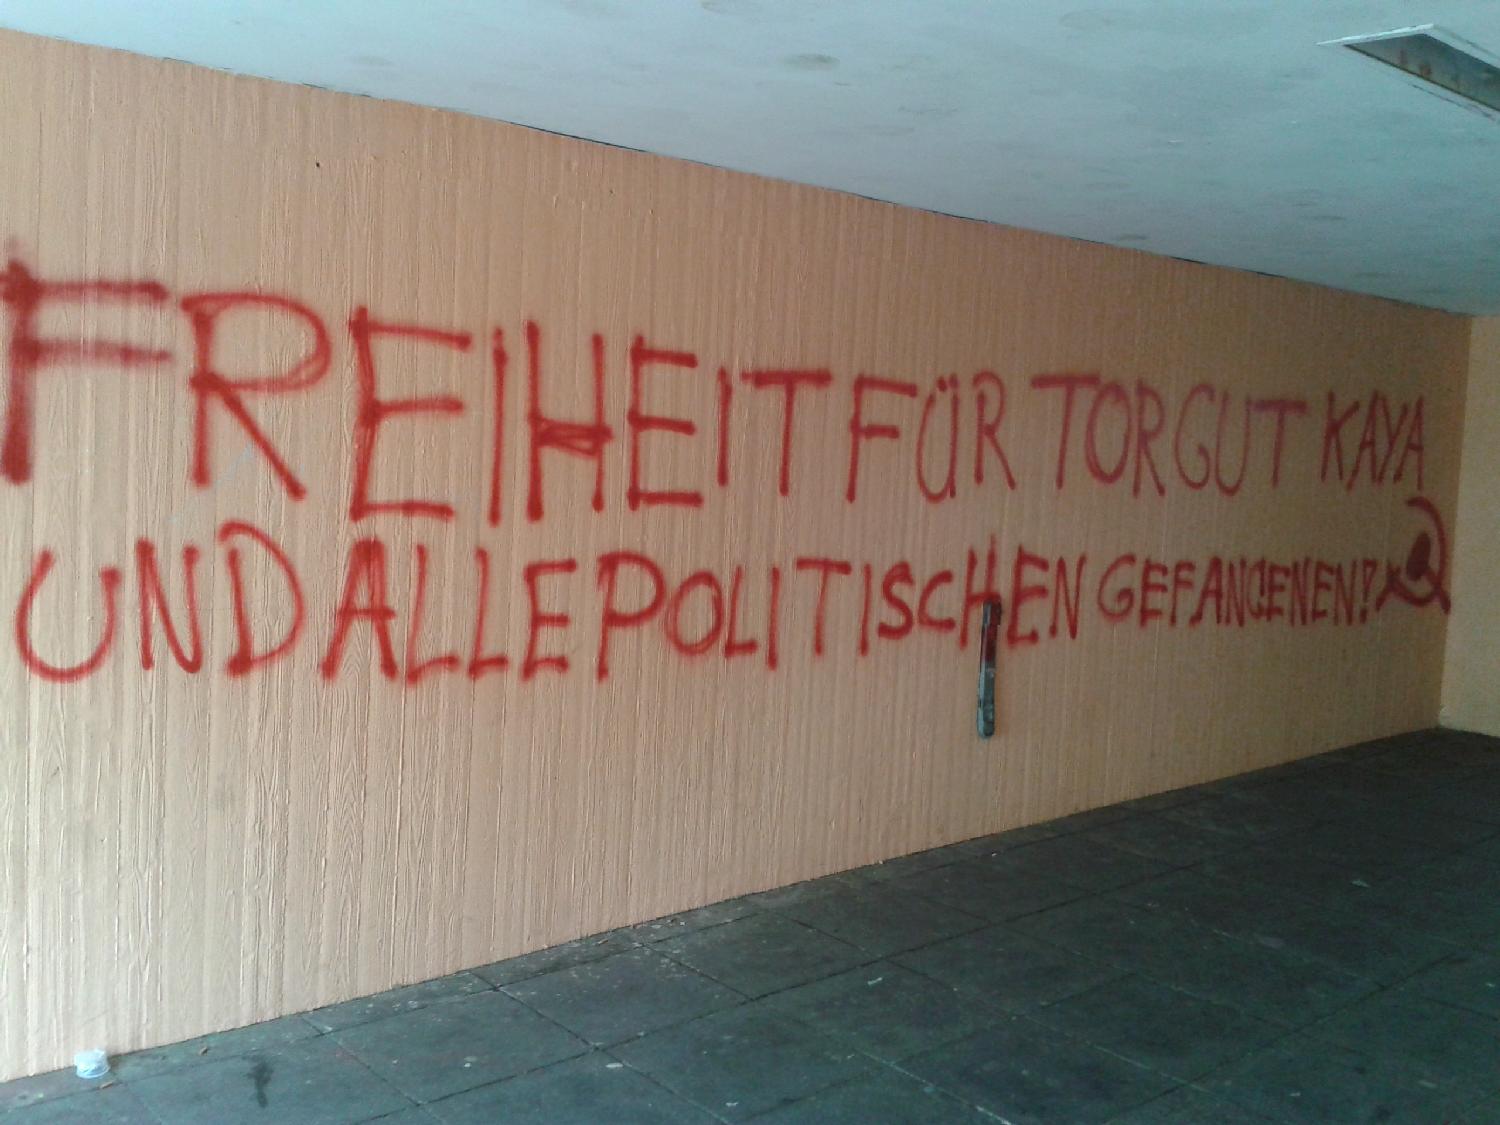 FREIHEIT FÜR TORGUT KAYA
UND ALLE POLITISCHEN GEFANGENEN!